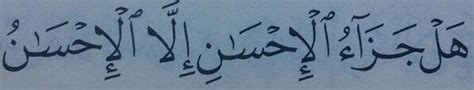 هَلْ جَزَآءُ ٱلْإِحْسَـٰنِ إِلَّا ٱلْإِحْسَـٰنُ